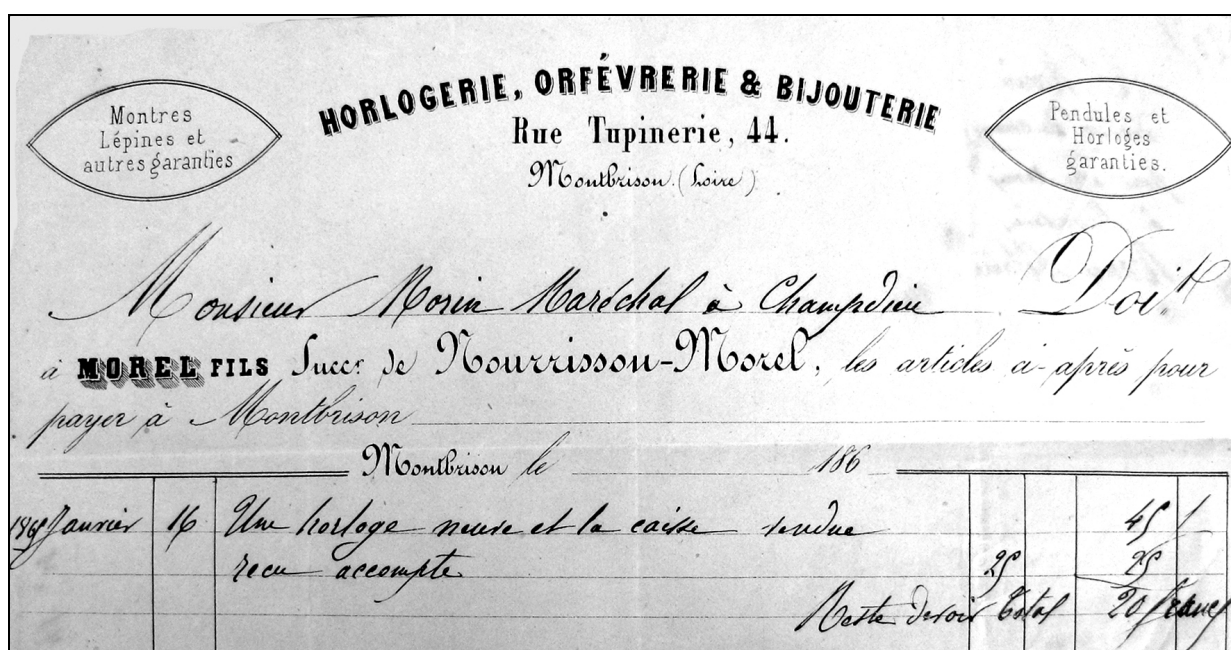 Montres
Lépines et
autres garanties
HORLOGERIE, ORFÉVRERIE & BIJOUTERIE
Rue Tupinerie, 44.
Montbrison (Loire)
Pendules et
Horloges
garanties.
Monsieur Morin Maréchal à Champdieu Doit
à MOREL FILS Succr de Nourrisson-Morel, les articles ci-après pour
payer à Montbrison
Montbrison le 186
Janvier 16 Une horloge neuve et la caisse rendue 45
recu accompte 25 25
Reste devoir Total 20 francs